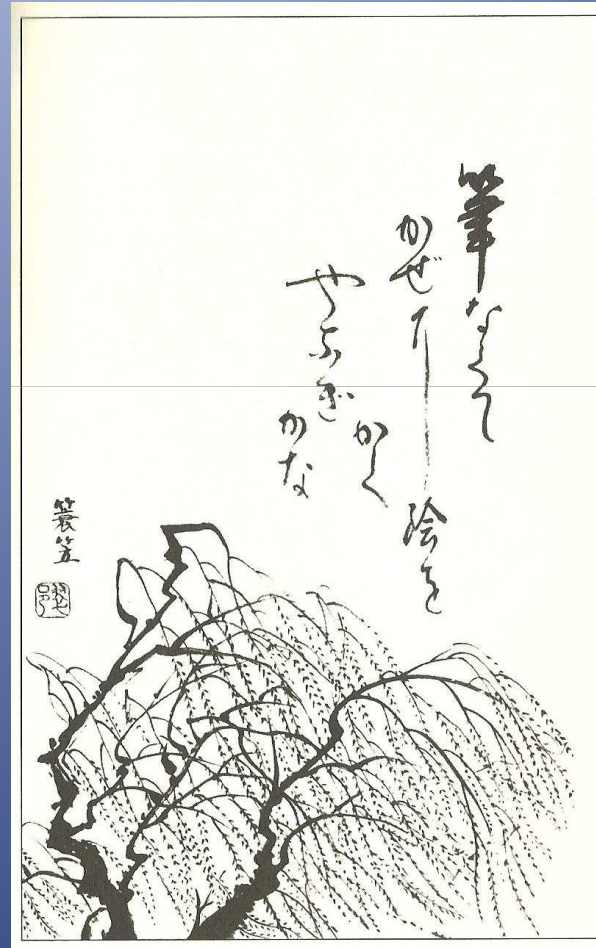 筆なくて
かぜに絵を
かく
やなぎ
かな
蓑笠